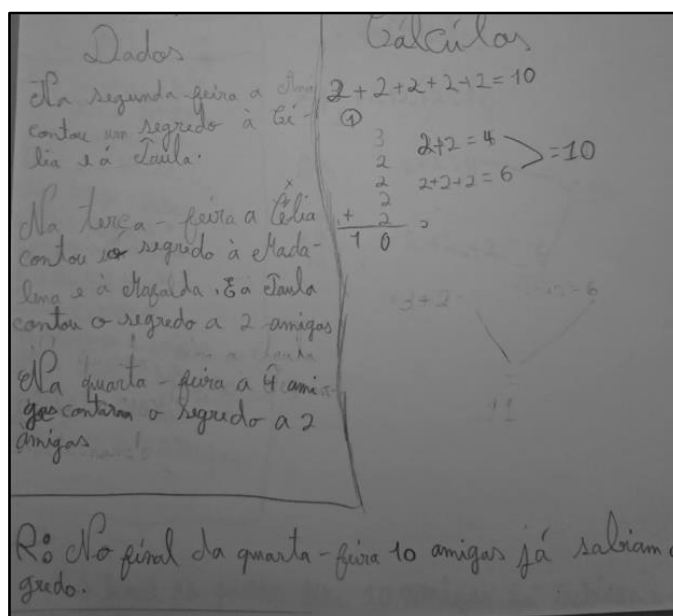 Dados
Na segunda-feira a Ana
contou um segredo à Cé-
lia e á Paula.
Na terça-feira a Célia
contou o segredo à Mada-
lena e à Mafalda. E a Paula
contou o segredo a 2 amigas
Na quarta-feira a 4 ami-
gas contarm o segredo a 2
amigas
Cálculos
2+2+2+2+2=10
1
3
2
2
2
+ 2
1 0
2+2=4
2+2+2=6
=10
3+2
=6
11
R: No final da quarta-feira 10 amigas já sabiam
gredo.